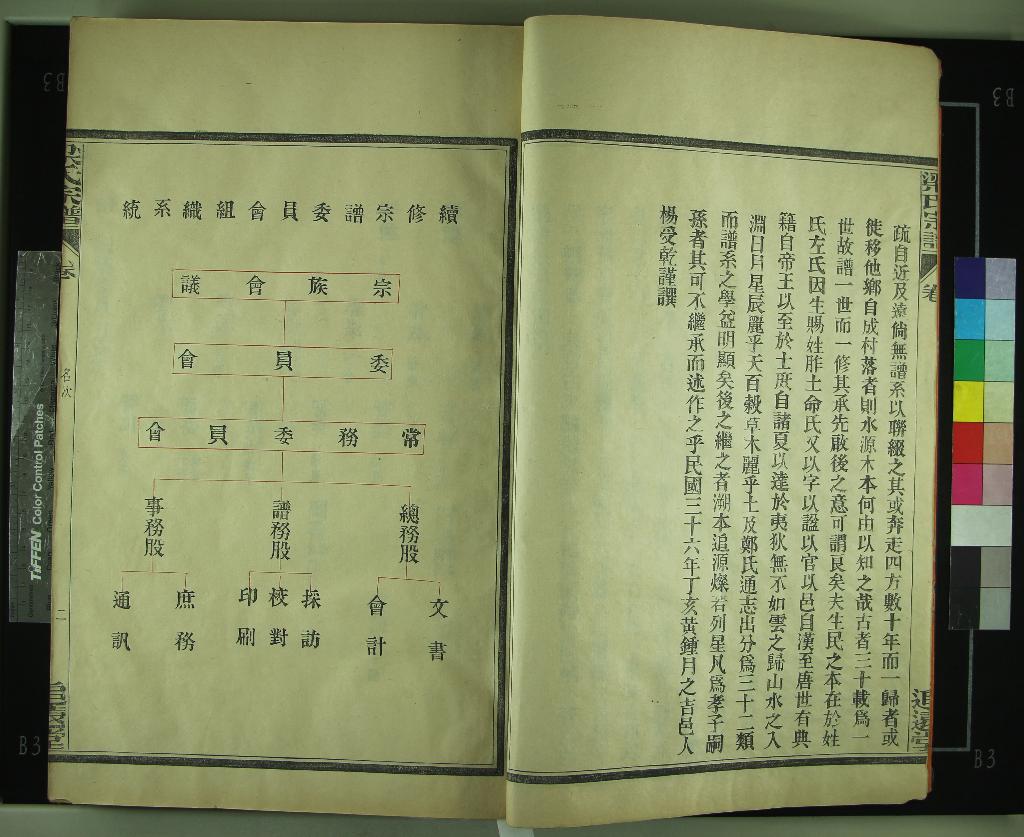 梁氏宗譜
卷
追遠堂
疏自近及遠倘無譜系以聯綴之其或奔走四方數十年而一歸者或
徙移他鄉自成村落者則水源木本何由以知之哉古者三十載爲一
世故譜一世而一修其承先啟後之意可謂良矣夫生民之本在於姓
氏左氏因生賜姓胙土命氏又以字以諡以官以邑自漢至唐世有典
籍自帝王以至於士庶自諸夏以達於夷狄無不如雲之歸山水之入
淵日月星辰麗乎天百穀草木麗乎土及鄭氏通志出分爲三十二類
而譜系之學益明顯矣後之繼之者溯本追源燦若列星凡爲孝子嗣
孫者其可不繼承而述作之乎民國三十六年丁亥黃鍾月之吉邑人
楊受乾謹譔
續修宗譜委員會組織系統
宗族會議
委員會
常務委員會
總務股
譜務股
事務股
文書
會計
採訪
校對
印刷
庶務
通訊
梁氏宗譜
卷
名次
二
追遠堂
TIFFEN Color Control Patches
B3
B3
B3
B3